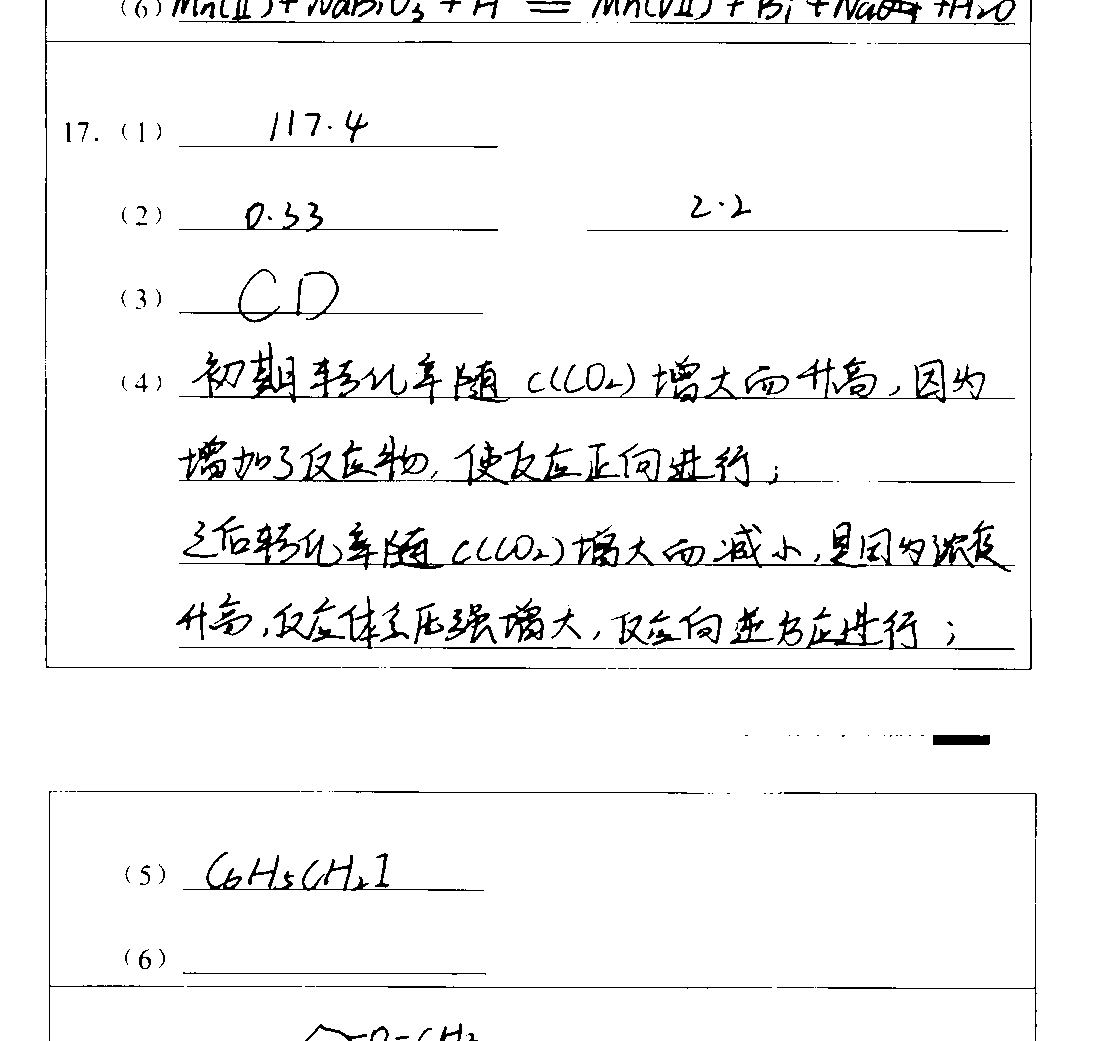 (6) Mn(Ⅱ) + NaBiO₃ + H = Mn(Ⅶ) + Bi + Na + H₂O
17. (1) 117.4
(2) 0.33 2.2
(3) CD
(4) 初期转化率随 c(CO₂) 增大而升高,因为
增加了反应物,使反应正向进行;
之后转化率随 c(CO₂) 增大而减小,是因为浓度
升高,反应体系压强增大,反应向逆方应进行;
(5) C₆H₅CH₂I
(6)